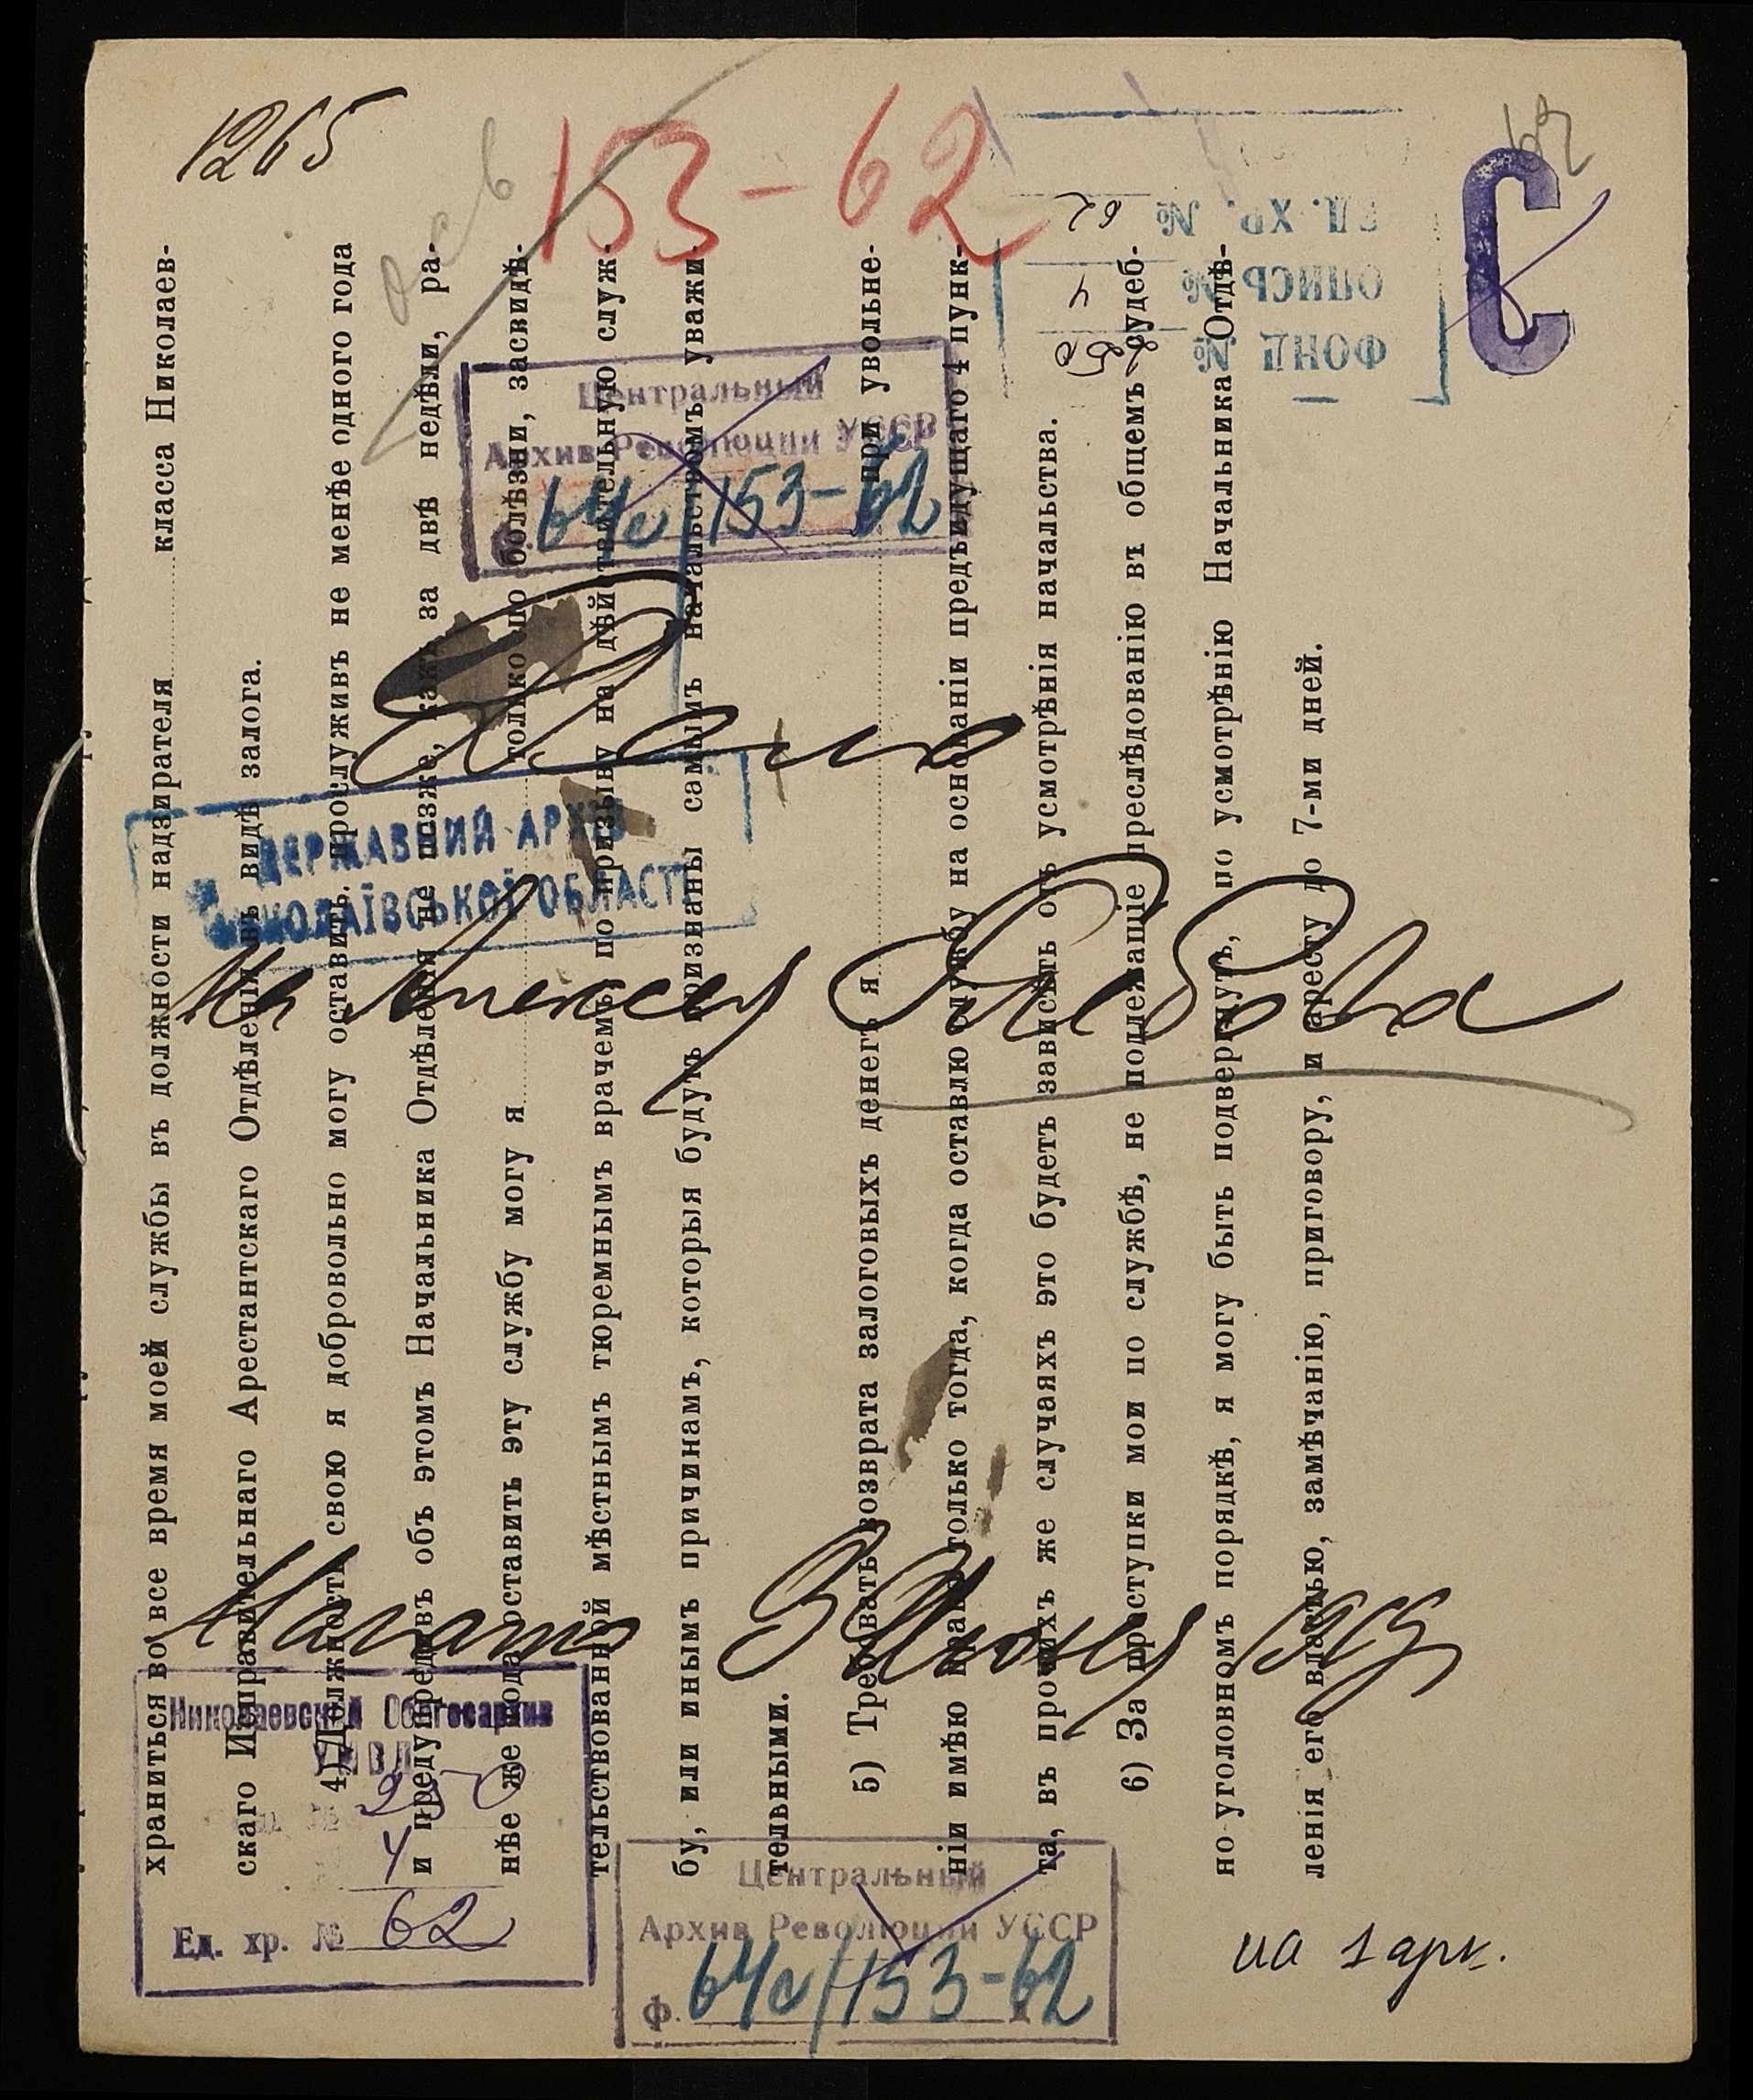 1265
62
153-62
С
ФОНД №
ОПИСЬ № 4
ЕД. ХР. № 62
Центральный
Архив Революции УССР
64с/153-62
Дело
ДЕРЖАВНИЙ АРХІВ
МИКОЛАЇВСЬКОЇ ОБЛАСТІ
На Алексея
Начато 3 Июня
Николаевский Облгосархив
УМВД
250
4
Ед. хр. № 62
Центральный
Архив Революции УССР
ф. 64с/153-62
на 1 арк.
храниться во все время моей службы въ должности надзирателя класса Николаев-
скаго Исправительнаго Арестантскаго Отдѣленія въ видѣ залога.
4) Должность свою я добровольно могу оставить, прослуживъ не менѣе одного года
и предупредивъ объ этомъ Начальника Отдѣленія не позже, какъ за двѣ недѣли, ра-
нѣе же года оставить эту службу могу я только по болѣзни, засвидѣ-
тельствованной мѣстнымъ тюремнымъ врачемъ, по призыву на дѣйствительную служ-
бу, или инымъ причинамъ, которыя будутъ признаны самымъ начальствомъ уважи-
тельными.
5) Требовать возврата залоговыхъ денегъ я при увольне-
ніи имѣю право только тогда, когда оставлю службу на основаніи предъидущаго 4 пунк-
та, въ прочихъ же случаяхъ это будетъ зависѣть отъ усмотрѣнія начальства.
6) За проступки мои по службѣ, не подлежащіе преслѣдованію въ общемъ судеб-
но уголовномъ порядкѣ, я могу быть подвергнутъ, по усмотрѣнію Начальника Отдѣ-
ленія его властью, замѣчанію, приговору, и аресту до 7-ми дней.